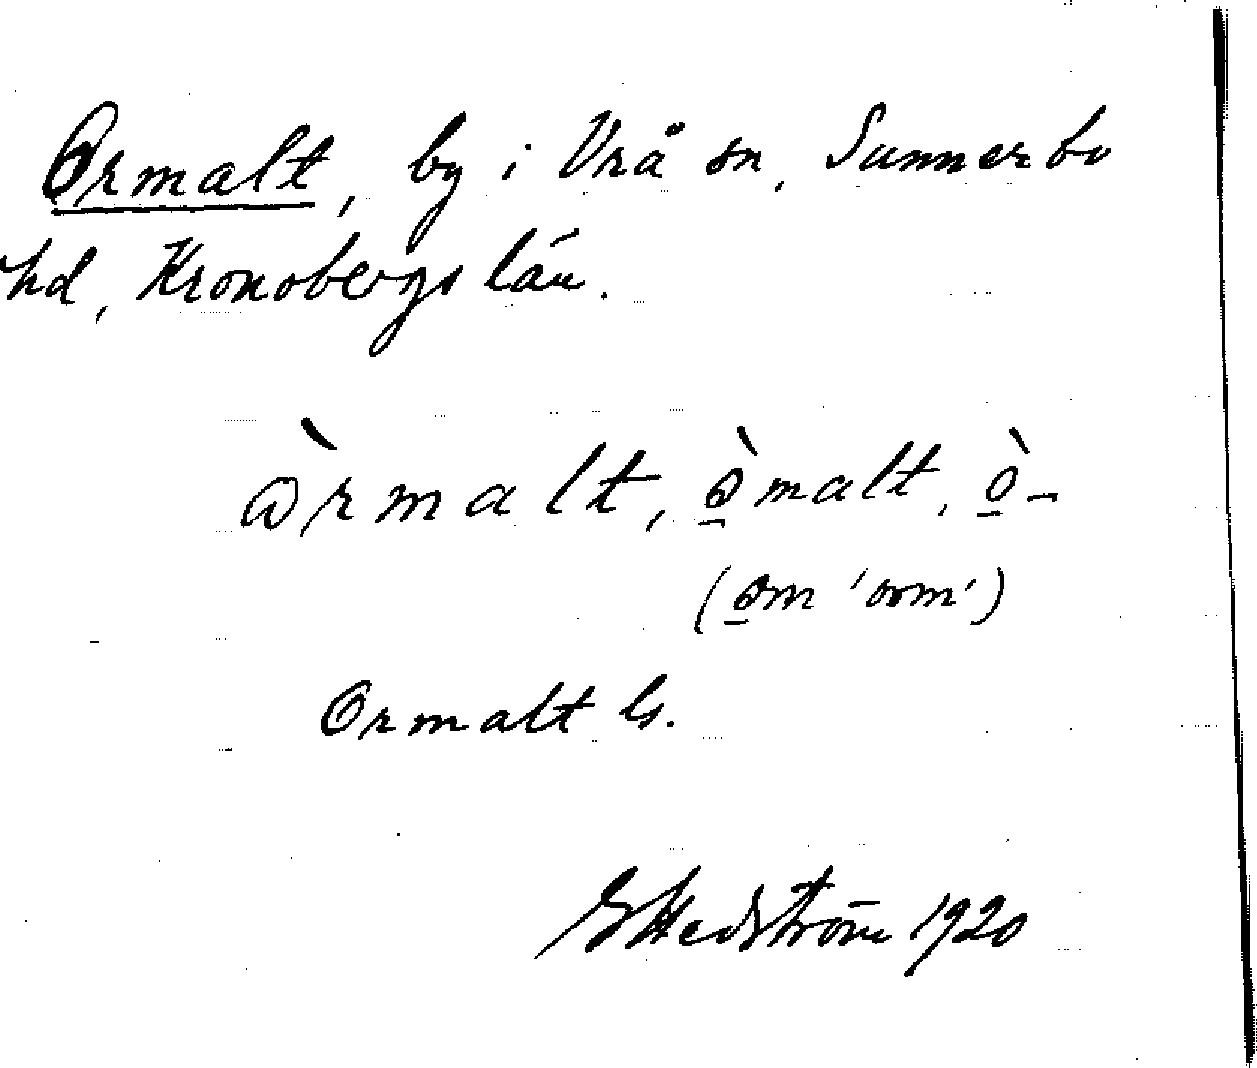 Ormalt, by i Vrå sn, Sunnerbo
hd, Kronobergs län.
òrmalt, ò̱malt, ò̱-
(o̱m 'orm')
Ormalt G.
G Hedström 1920